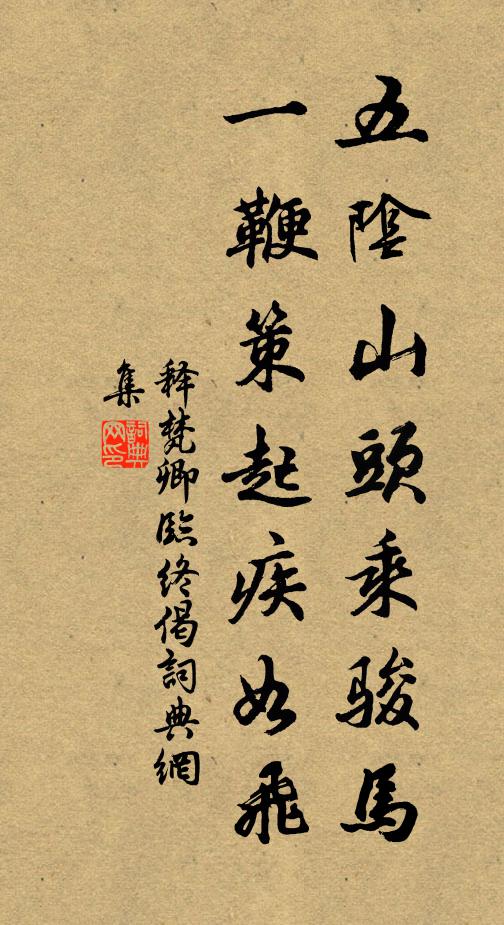 五陰山頭乘駿馬
一鞭策起疾如飛
释梵卿臨终偈詞典網
集
詞典
网印